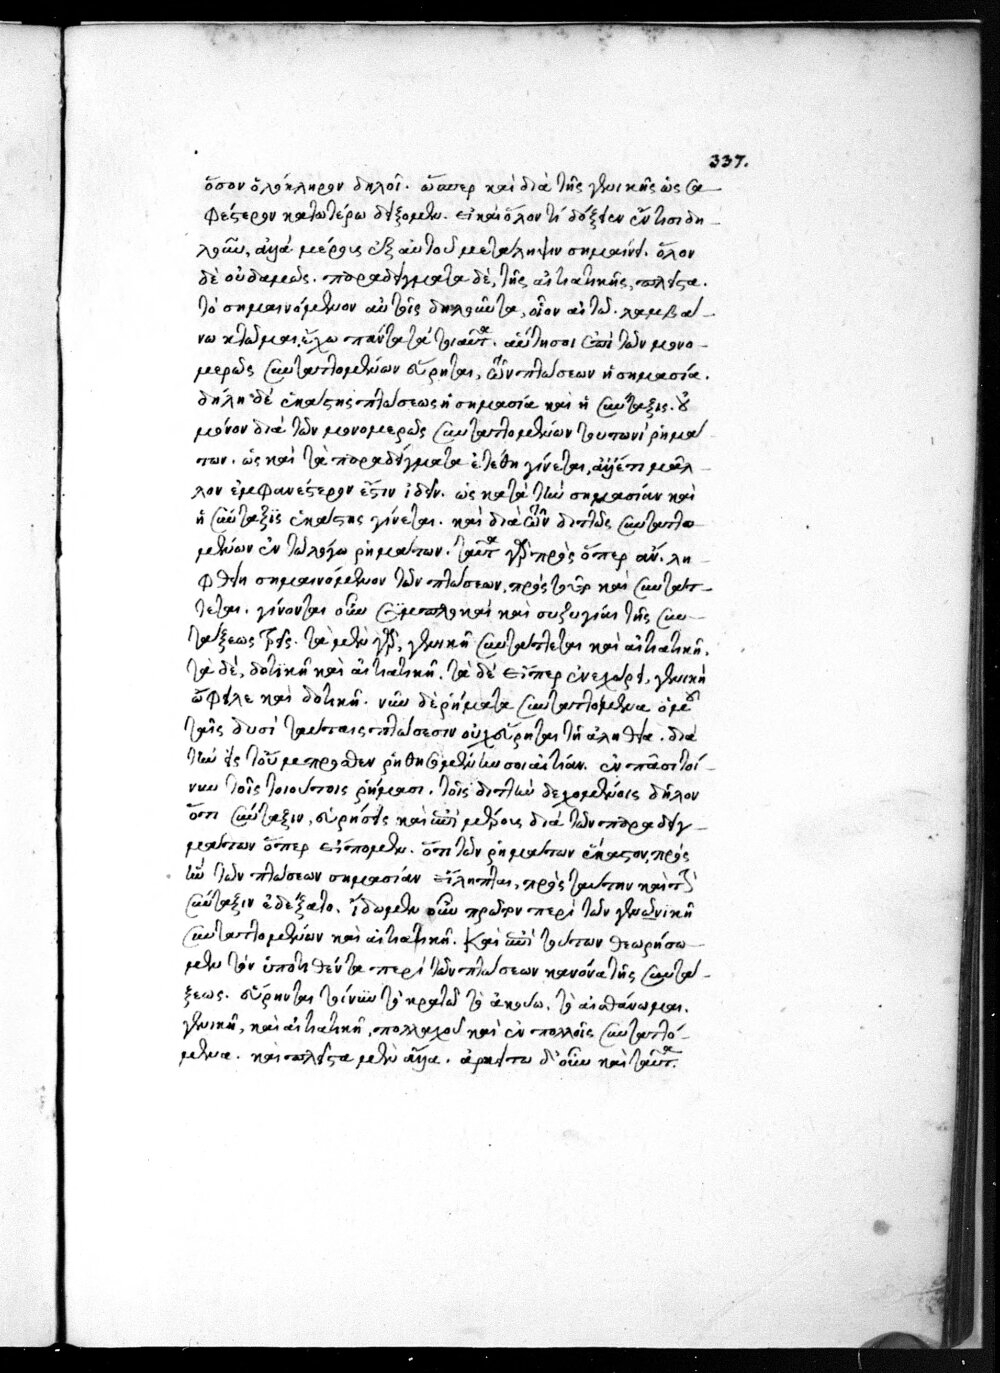 337.
ὅσον ὁλόκληρον δηλοῖ. ὥσπερ καὶ διὰ τῆς γενικῆς ὡς σα-
φέστερον κατωτέρω δείξομεν. εἰ καὶ ὅλον τί δόξειεν ἔν τισι δη-
λοῦν, ἀλλὰ μέρους ἐξ αὐτοῦ μετάληψιν σημαίνει. ὅλον
δὲ οὐδαμῶς. παραδείγματα δὲ, τῆς αἰτιατικῆς, πλεῖστα.
τὸ σημαινόμενον αὐτῆς δηλοῦντα, οἷον αἰτῶ. λαμβά-
νω κτῶμαι, ἔχω πάντα τὰ τοιαῦτα. αὕτη σοι ἐπὶ τῶν μονο-
μερῶς συνταττομένων εὕρηται, τῶν πτώσεων ἡ σημασία.
δήλη δὲ ἑκάστης πτώσεως ἡ σημασία καὶ ἡ σύνταξις. οὐ
μόνον διὰ τῶν μονομερῶς συνταττομένων τουτωνὶ ῥημά-
των. ὡς καὶ τὰ παραδείγματα ἐτέθη γίνεται, ἀλλ' ἔτι μᾶλ-
λον ἐμφανέστερον ἔστιν ἰδεῖν. ὡς κατὰ τὴν σημασίαν καὶ
ἡ σύνταξις ἑκάστης γίνεται. καὶ διὰ τῶν διπλῶς συνταττο-
μένων ἐν τῷ λόγῳ ῥημάτων. ταῦτα γὰρ πρὸς ὅπερ ἂν λη-
φθείη σημαινόμενον τῶν πτώσεων, πρὸς τοῦτο καὶ συντάτ-
τεται. γίνονται οὖν συμπλοκαὶ καὶ συζυγίαι τῆς συν-
τάξεως τρεῖς. τὰ μὲν γὰρ, γενικῇ συντάττεται καὶ αἰτιατικῇ.
τὰ δὲ, δοτικῇ καὶ αἰτιατικῇ. τὰ δὲ εἴπερ ἐνεχώρει, γενικῇ
ὤφειλε καὶ δοτικῇ. νῦν δὲ ῥήματα συνταττόμενα ὁμοῦ
ταῖς δυσὶ ταύταις πτώσεσιν οὐχ εὕρηται τῇ ἀληθείᾳ. διὰ
τὴν εἰς τοὔμπροσθεν ῥηθησομένην σοι αἰτίαν. ἐν πᾶσι τοί-
νυν τοῖς τοιούτοις ῥήμασι. τοῖς διπλῆν δεχομένοις δῆλον
ὅτι σύνταξιν, εὑρήσεις καὶ ἐπὶ μέρους διὰ τῶν παραδειγ-
μάτων ὅπερ εἴπομεν. ὅτι τῶν ῥημάτων ἕκαστον, πρὸς
ἣν τῶν πτώσεων σημασίαν εἴληπται, πρὸς ταύτην καὶ τὴν
σύνταξιν ἐδέξατο. ἴδωμεν οὖν πρῶτον περὶ τῶν γενικῇ
συνταττομένων καὶ αἰτιατικῇ. Καὶ ἐπὶ τούτων θεωρήσω-
μεν τὸν ὑποτεθέντα περὶ τῶν πτώσεων κανόνα τῆς συντά-
ξεως. εὕρηνται τοίνυν τὸ κρατῶ τὸ ἀκούω. τὸ αἰσθάνομαι.
γενικῇ, καὶ αἰτιατικῇ, πολλαχοῦ καὶ ἐν πολλοῖς συνταττό-
μενα. καὶ πλεῖστα μὲν ἄλλα. ἀρκείτω δ' οὖν καὶ ταῦτα.